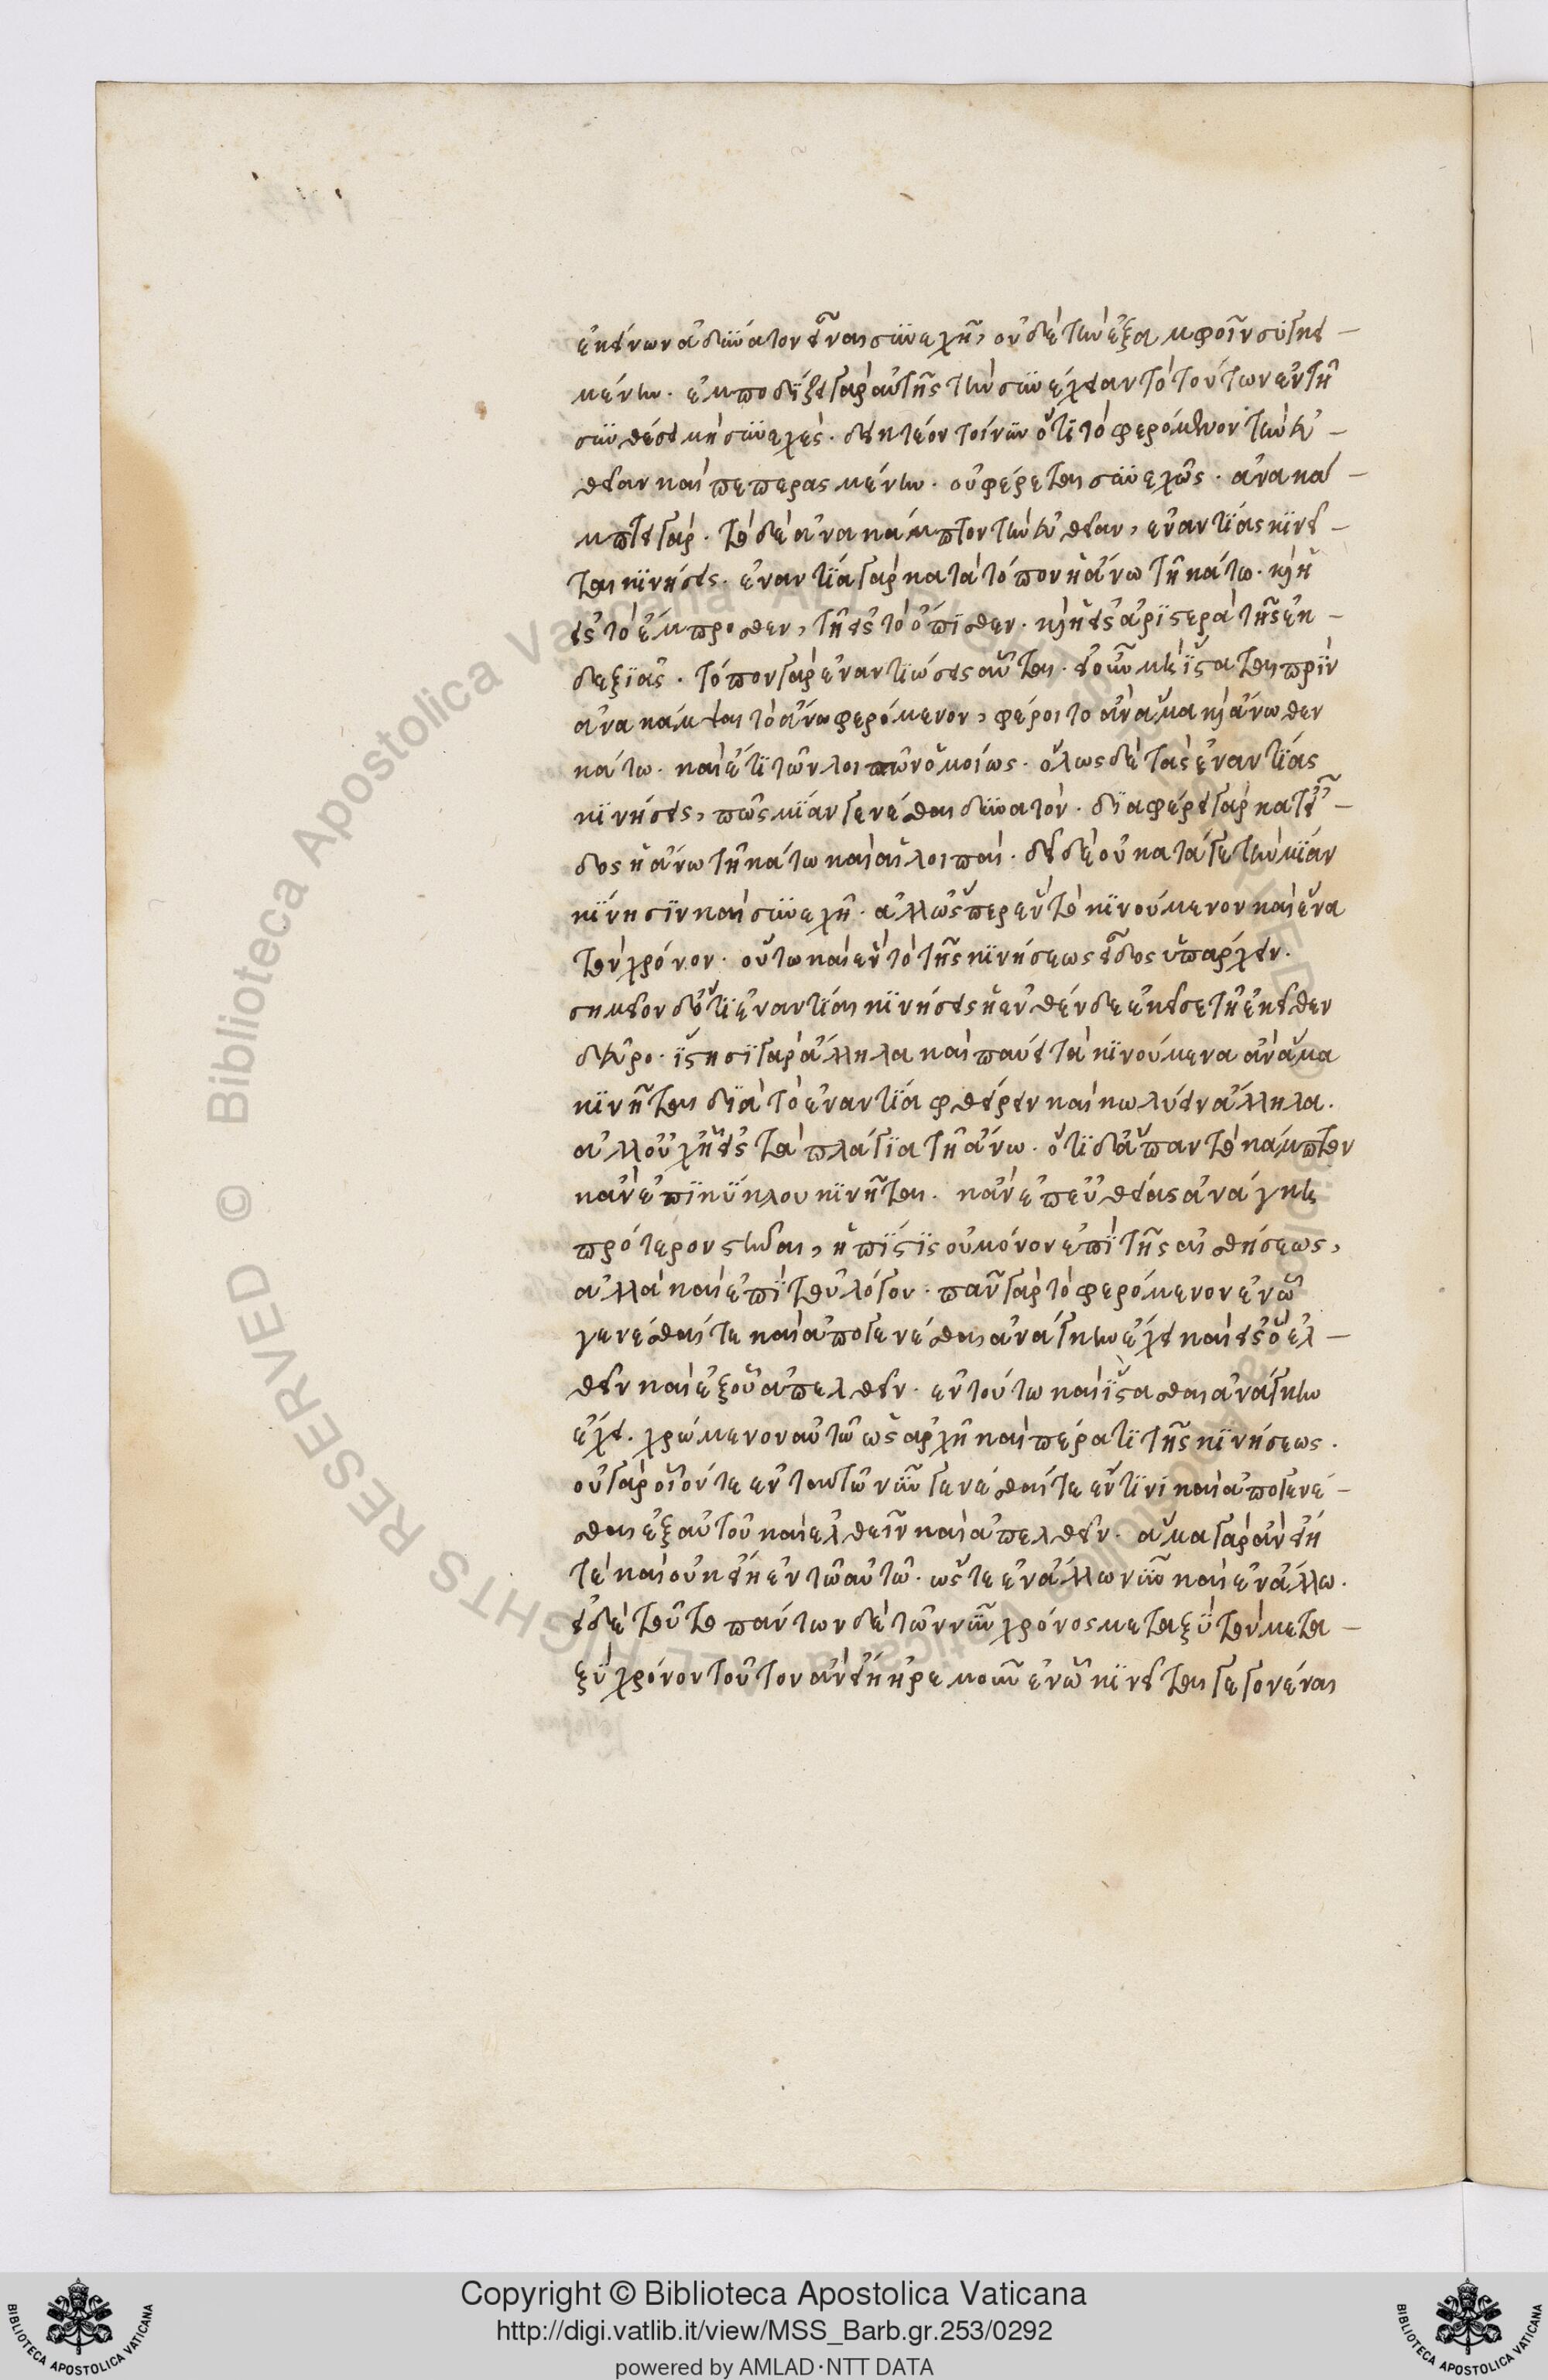 ἐκείνων ἀδύνατον εἶναι συνεχῆ, οὐδὲ τὴν ἐξ ἀμφοῖν συγκει–
μένην. ἐμποδίζει γὰρ αὐτῆς τὴν συνέχειαν τὸ τούτων ἐν τῇ
συνθέσει μὴ συνεχές. δεικτέον τοίνυν ὅτι τὸ φερόμενον τὴν εὐ–
θεῖαν καὶ πεπερασμένην. οὐ φέρεται συνεχῶς. ἀνακά–
μπτει γάρ. τὸ δὲ ἀνακάμπτον τὴν εὐθεῖαν, ἐναντίας κινεῖ–
ται κινήσεις. ἐναντία γὰρ κατὰ τόπον ἡ ἄνω τῇ κάτω. καὶ ἡ
εἰς τὸ ἔμπροσθεν, τῇ εἰς τὸ ὄπισθεν. καὶ ἡ εἰς ἀριστερὰ τῆς ἐκ–
δεξιᾶς. τόπου γὰρ ἐναντιώσεις αὗται. εἰ οὖν μὴ ἵσταται πρὶν
ἀνακάμψαι τὸ ἄνω φερόμενον, φέροιτο ἂν ἅμα καὶ ἄνωθεν
κάτω. καὶ ἐπὶ τῶν λοιπῶν ὁμοίως. ὅλως δὲ τὰς ἐναντίας
κινήσεις, πῶς μίαν γενέσθαι δυνατόν. διαφέρει γὰρ κατ' εἶ–
δος ἡ ἄνω τῇ κάτω καὶ αἱ λοιπαί. δεῖ δὲ οὐ κατά γε τὴν μίαν
κίνησιν καὶ συνεχῆ. ἀλλ' ὥσπερ ἓν τὸ κινούμενον καὶ ἕνα
τὸν χρόνον. οὕτω καὶ ἓν τὸ τῆς κινήσεως εἶδος ὑπάρχειν.
σημεῖον δ' ὅτι ἐναντίαι κινήσεις ἡ ἐνθένδε ἐκεῖσε τῇ ἐκεῖθεν
δεῦρο. ἵστησι γὰρ ἄλληλα καὶ παύει τὰ κινούμενα ἂν ἅμα
κινῆται διὰ τὸ ἐναντία φθείρειν καὶ κωλύειν ἄλληλα.
ἀλλ' οὐχ ἡ εἰς τὰ πλάγια τῇ ἄνω. ὅτι δ' ἅπαν τὸ κάμπτον
κἂν ἐπὶ κύκλου κινῆται. κἂν ἐπ' εὐθείας ἀνάγκη
πρότερον στῆναι, ἡ πίστις οὐ μόνον ἐπὶ τῆς αἰσθήσεως,
ἀλλὰ καὶ ἐπὶ τοῦ λόγου. πᾶν γὰρ τὸ φερόμενον ἐν ᾧ
γενέσθαι τε καὶ ἀπογενέσθαι ἀνάγκην ἔχει καὶ εἰς ὃ ἐλ–
θεῖν καὶ ἐξ οὗ ἀπελθεῖν. ἐν τούτω καὶ ἵστασθαι ἀνάγκην
ἔχει. χρώμενον αὐτῷ ὡς ἀρχῇ καὶ πέρατι τῆς κινήσεως.
οὐ γὰρ οἷόν τε ἐν ταυτῷ νῦν γενέσθαι τε ἔν τινι καὶ ἀπογενέ–
σθαι ἐξ αὐτοῦ καὶ ἐλθεῖν καὶ ἀπελθεῖν. ἅμα γὰρ ἂν εἴη
τὲ καὶ οὐκ εἴη ἐν τῷ αὐτῷ. ὥστε ἐν ἄλλω νῦν καὶ ἐν ἄλλω.
εἰ δὲ τοῦτο πάντων δὲ τῶν νῦν χρόνος μεταξὺ τὸν μετα–
ξὺ χρόνον τοῦτον ἂν εἴη ἠρεμοῦν ἐν ᾧ κινεῖται γεγονέναι
Copyright © Biblioteca Apostolica Vaticana
http://digi.vatlib.it/view/MSS_Barb.gr.253/0292
powered by AMLAD·NTT DATA